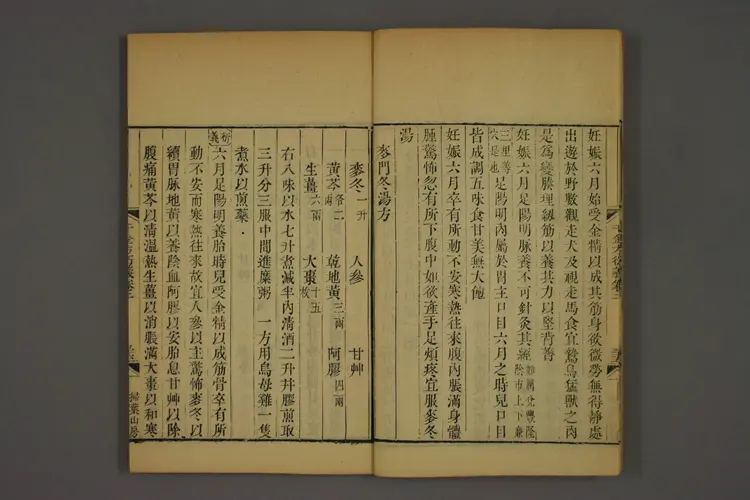 妊娠六月始受金精以成其筋身欲微勞無得靜處
出遊於野數觀走犬及視走馬食宜鷙鳥猛獸之肉
是爲變腠理紉筋以養其力以堅背膂
妊娠六月足陽明脈養不可針灸其經
足陽明內屬於胃主口目六月之時兒口目
皆成調五味食甘美無大飽
妊娠六月卒有所動不安寒熱往來腹內脹滿身體
腫驚怖忽有所下腹中如欲產手足煩疼宜服麥冬
湯
麥門冬湯方
麥冬一升 人參 甘艸
黃芩各二兩 乾地黃三兩 阿膠四兩
生薑六兩 大棗十五枚
右八味以水七升煮減半內清酒二升幷膠煎取
三升分三服中間進糜粥 一方用烏母雞一隻
煮水以煎藥
衍義
六月足陽明養胎時兒受金精以成筋骨卒有所
動不安而寒熱往來故宜人參以主驚怖麥冬以
續胃脈地黃以養陰血阿膠以安胎息甘艸以除
腹痛黃芩以清溫熱生薑以消脹滿大棗以和寒
千金方衍義卷二
掃葉山房